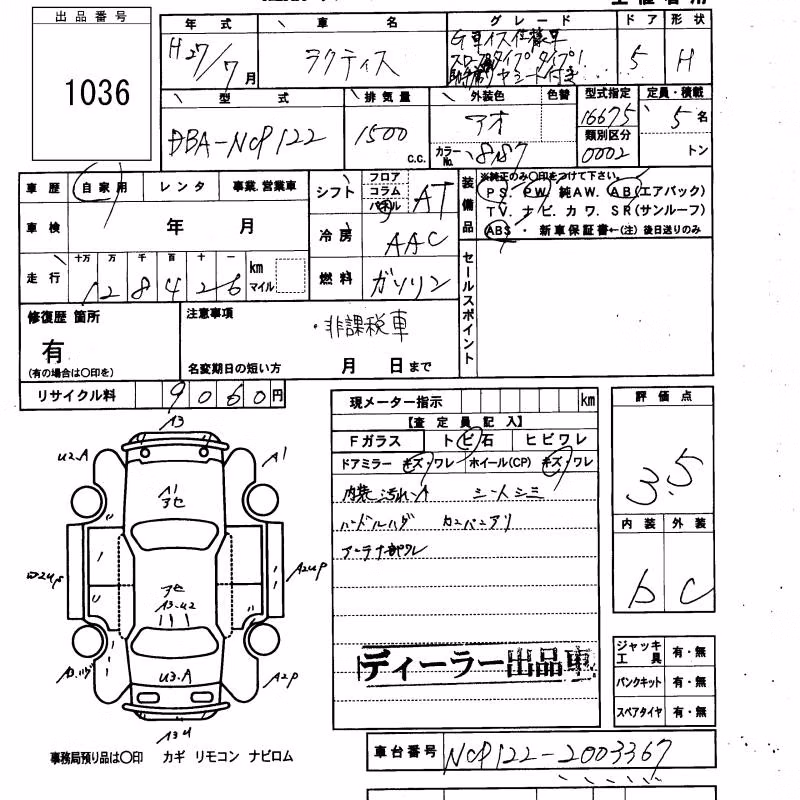 出品番号
1036
年式
車名
グレード
ドア
形状
H27/7月
ラクティス
G車イス仕様車
スロープタイプ タイプ1
助手席リヤシート付き
5
H
型式
排気量
外装色
色替
型式指定
定員・積載
DBA-NCP122
1500
c.c.
アオ
カラーNo.
8W7
16675
類別区分
0002
5名
トン
車歴
自家用
レンタ
事業.営業車
車検
年 月
走行
十万 万 千 百 十 一
128426
km
マイル
シフト
フロア
コラム
パネル
AT
冷房
AAC
燃料
ガソリン
装備品
※純正のみ○印をつけて下さい。
PS. PW. 純AW. AB(エアバック)
TV. ナビ. カワ. SR(サンルーフ)
ABS・新車保証書←(注)後日送りのみ
セールスポイント
修復歴 箇所
有
(有の場合は○印を)
注意事項
・非課税車
名変期日の短い方 月 日まで
リサイクル料
9060円
現メーター指示
km
【査定員記入】
Fガラス
トビ石
ヒビワレ
ドアミラー
キズ・ワレ
ホイール(CP)
キズ・ワレ
内装汚れ
シートシミ
ハンドルハゲ
カンバンアリ
アンテナ部ワレ
ディーラー出品車
評価点
3.5
内装
外装
b
C
ジャッキ工具
有・無
パンクキット
有・無
スペアタイヤ
有・無
A3
U2.A
A1
A1
アセ
アセ
A3.U2
A2UP
U3.A
A2P
事務局預り品は○印 カギ リモコン ナビロム
車台番号
NCP122-2003367